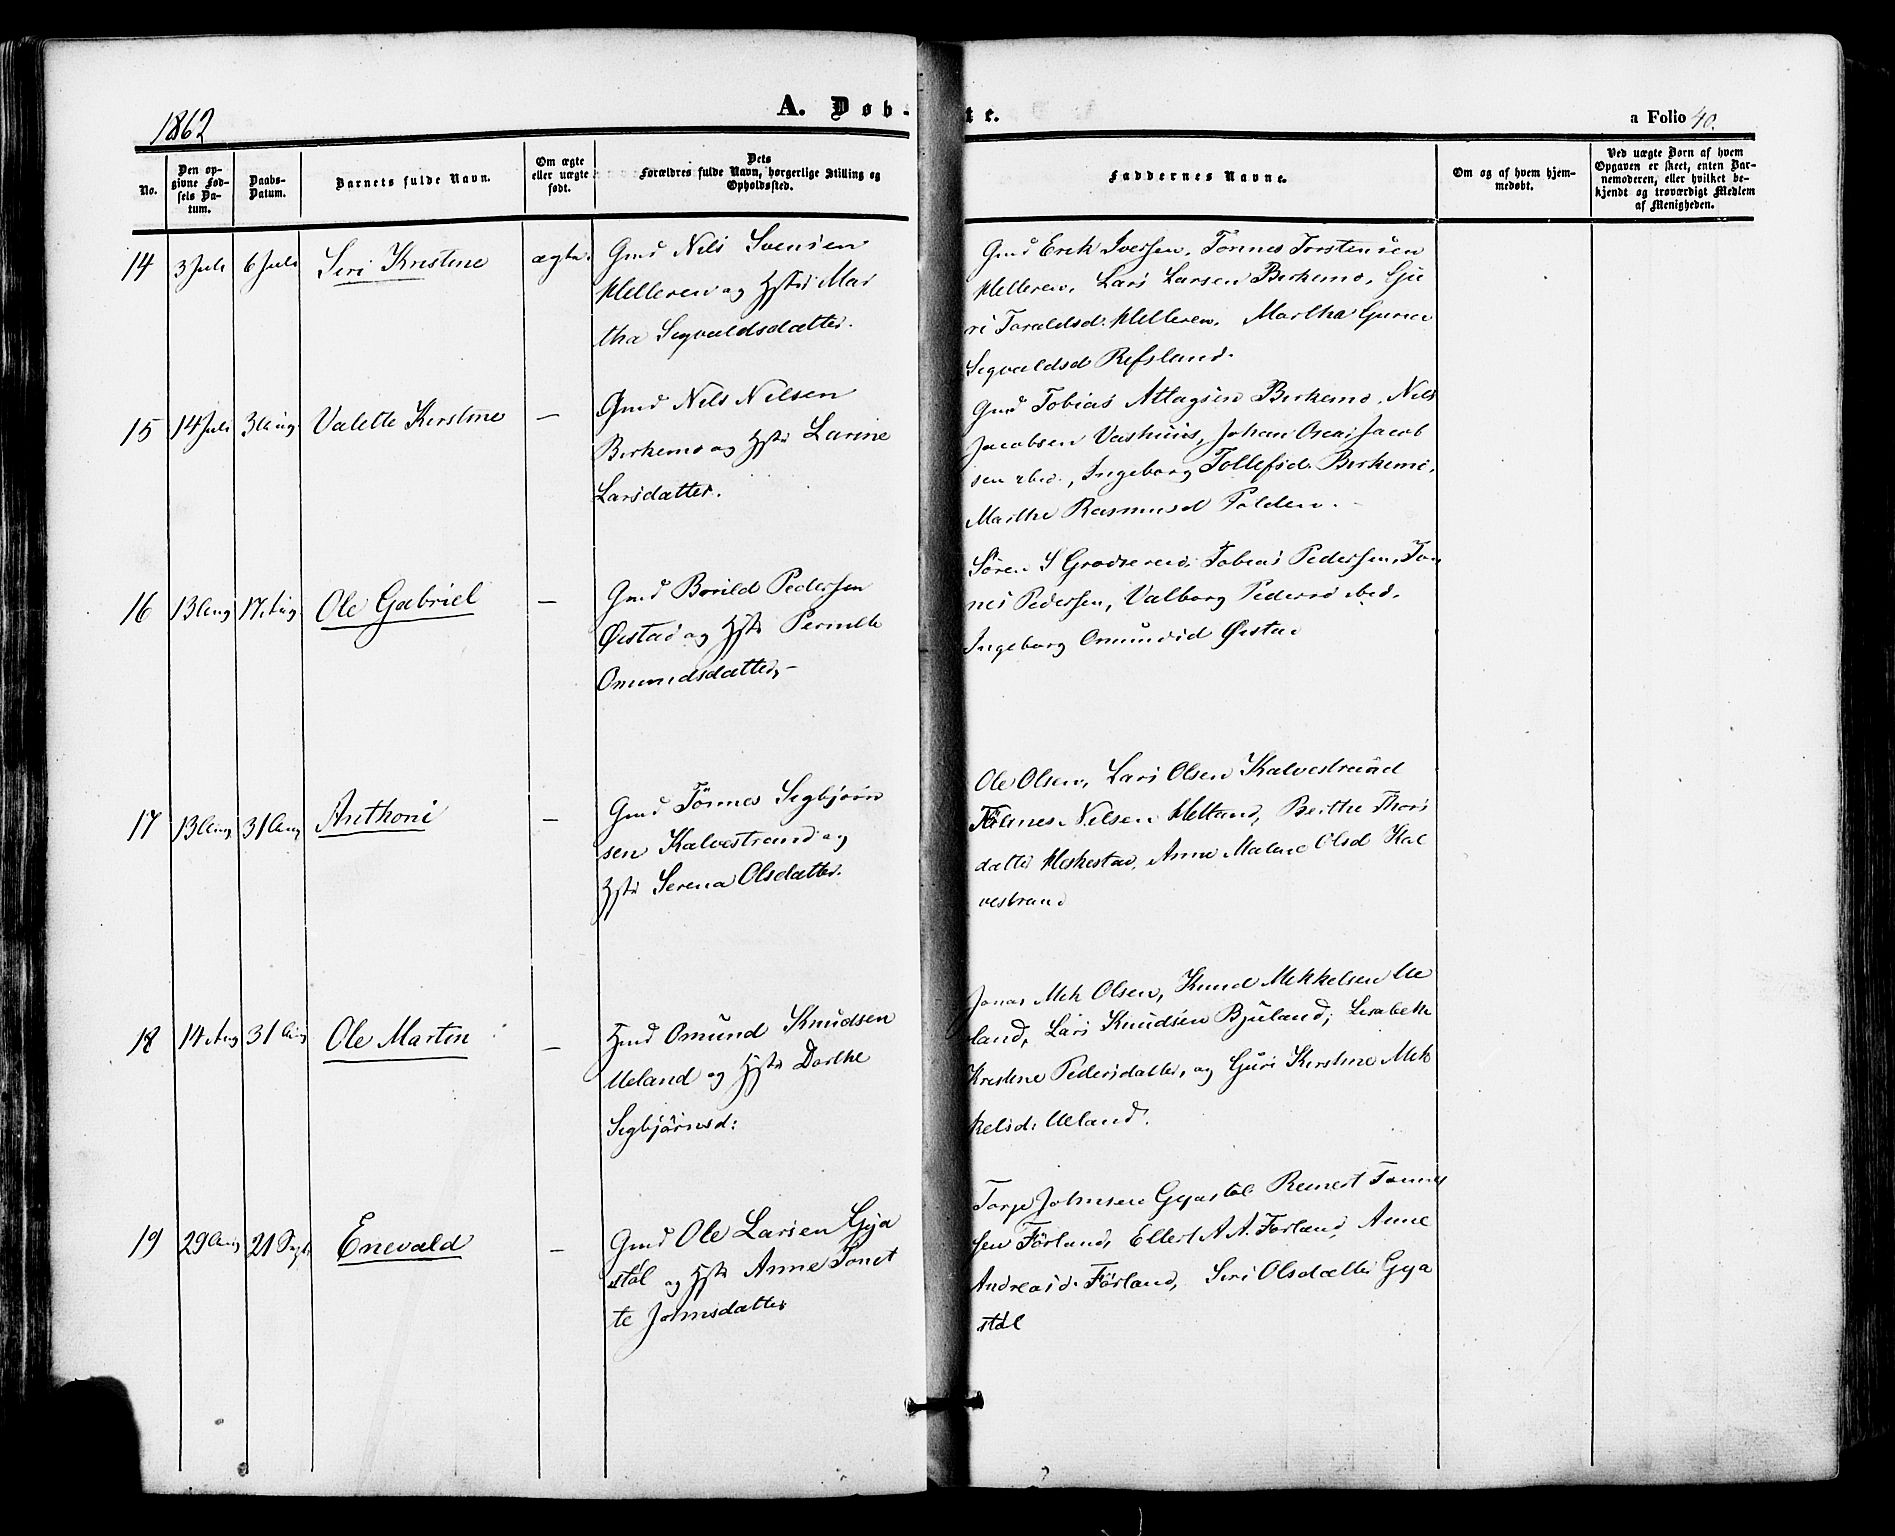 1862
A. Døb-
te.
a Folio 40.
No.
Den op-
givne Fød-
sels Da-
tum.
Daabs-
Datum.
Barnets fulde Navn.
Om ægte
eller uægte
født.
Dets
Forældres fulde Navn, borgerlige Stilling og
Opholdssted.
Faddernes Navne.
Om og af hvem hjem-
medøbt.
Ved uægte Børn af hvem
Opgaven er skeet, enten Bar-
nemoderen, eller hvilket be-
kjendt og troværdigt Medlem
af Menigheden.
14 3 Juli 6 Juli Siri Kristine ægte.
Gmd Nils Svensen
Helleren og Hstr Mar
tha Sigvaldsdatter.
Gmd Erik Iversen, Tönnes Torstensen
Helleren, Lars Larsen Birkemo, Gu
ri Taraldsd. Helleren, Martha Gurine
Sigvaldsd Refsland.
15 14 Juli 3 Aug Valette Kirstine —
Gmd Nils Nilsen
Birkemo og Hstr Larine
Larsdatter.
Gmd Tobias Atlagsen Birkemo, Nils
Jacobsen Vashuus, Johan Oscar Jacob
sen ibid., Ingeborg Tollefsd. Birkemo,
Marthe Rasmusd Polden. -
16 13 Aug 17. Aug Ole Gabriel —
Gmd Borild Pedersen
Ørstad og Hstr Pernille
Omundsdatter, -
Sören S Grodseren, Tobias Pedersen, Tön
nes Pedersen, Valborg Pedersd ibid.
Ingeborg Omundsd Ørstad
17 13 Aug 31 Aug Anthoni —
Gmd Tönnes Sigbjörn
sen Kalvestrand og
Hstr Serena Olsdatter.
Ole Olsen, Lars Olsen Kalvestrand
Tönnes Nilsen Helland, Berthe Thors
datter Heskestad, Anne Malene Olsd Kal
vestrand
18 14 Aug 31 Aug Ole Martin —
Gmd Omund Knudsen
Ueland og Hstr Dorthe
Sigbjörnsd:
Jonas Mik Olsen, Knud Mikkelsen Ue
land, Lars Knudsen Bjuland, Lisabeth
Kristine Pedersdatter, og Guri Kirstine Mik
kelsd: Ueland.
19 29 Aug 21 Sept. Enevald —
Gmd Ole Larsen Gya
stöl og Hstr Anne Tonet
te Johnsdatter
Torje Johnsen Gyastöl Reinert Tönnes
sen Förland, Ellert A A. Förland, Anne
Andreasd. Förland, Siri Olsdatter Gya
stöl